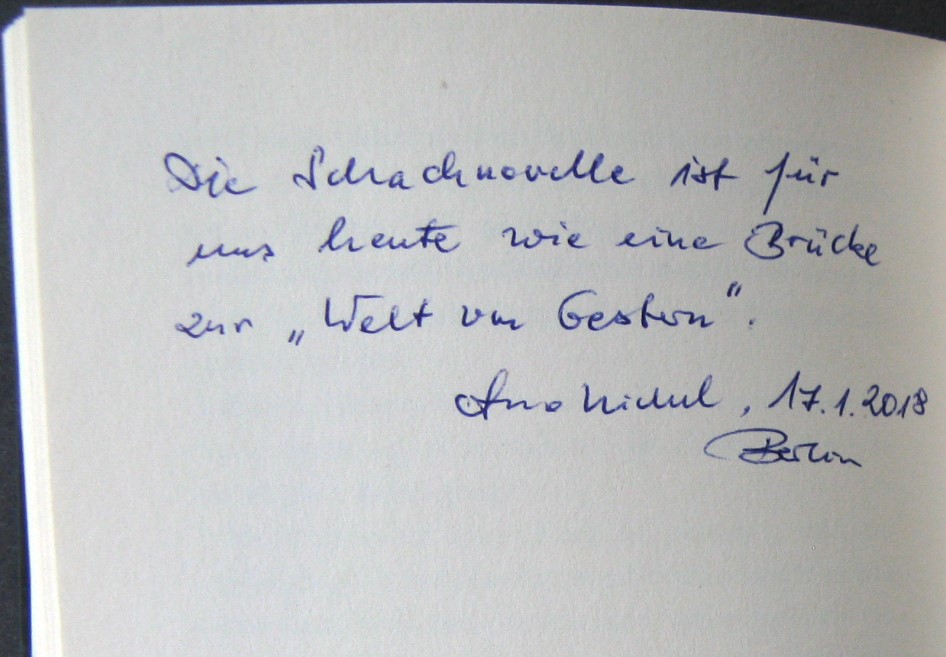 Die Schachnovelle ist für
uns heute wie eine Brücke
zur „Welt von Gestern“.
Arno Nickel, 17.1.2018
Berlin